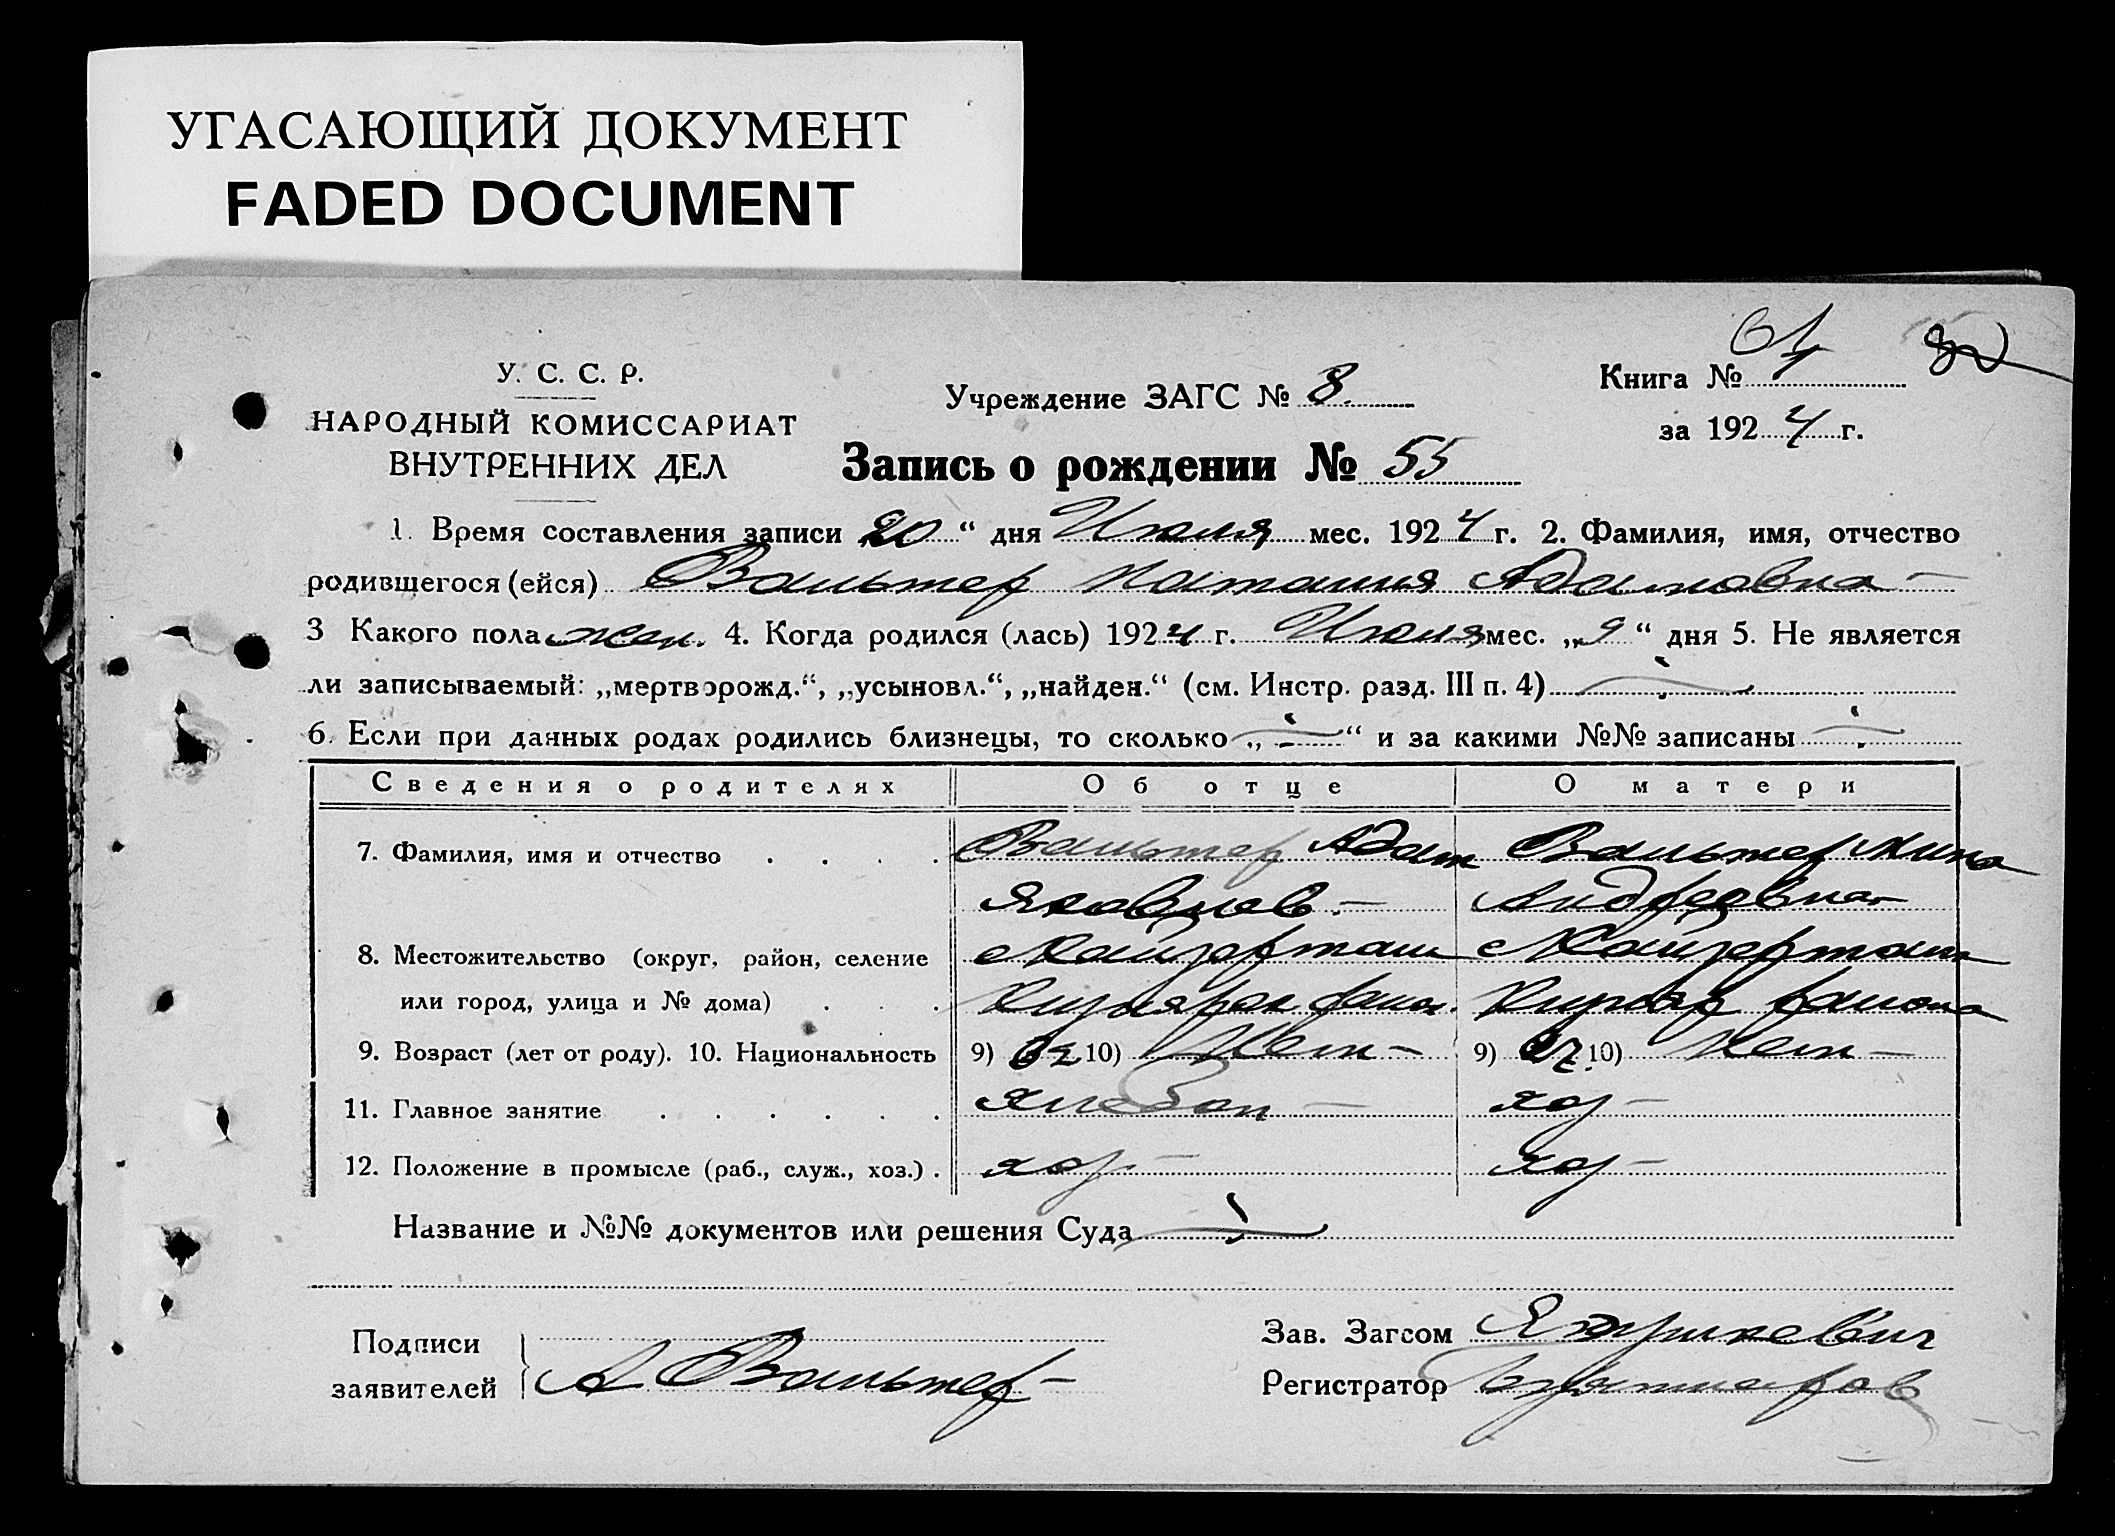 УГАСАЮЩИЙ ДОКУМЕНТ
FADED DOCUMENT
У. С. С. Р.
НАРОДНЫЙ КОМИССАРИАТ
ВНУТРЕННИХ ДЕЛ
Учреждение ЗАГС № 8.
Книга №
за 1924 г.
Запись о рождении № 55
1. Время составления записи 20 “ дня Июля мес. 1924 г. 2. Фамилия, имя, отчество
родившегося (ейся) Вальтер Наталия Адамовна —
3 Какого пола жен. 4. Когда родился (лась) 1924 г. Июля мес. „ 9 “ дня 5. Не является
ли записываемый: „мертворожд.“, „усыновл.“, „найден.“ (см. Инстр. разд. III п. 4)
6. Если при данных родах родились близнецы, то сколько „ “ и за какими №№ записаны
Сведения о родителях Об отце О матери
7. Фамилия, имя и отчество Вальтер Адам Вальтер
Яковлев. — Андреевна
8. Местожительство (округ, район, селение
или город, улица и № дома) района
9. Возраст (лет от роду). 10. Национальность 9) 10) Нем — 9) 10) Нем —
11. Главное занятие Хлебоп — хоз —
12. Положение в промысле (раб., служ., хоз.) . хоз. — хоз —
Название и №№ документов или решения Суда
Подписи
заявителей А Вальтер —
Зав. Загсом
Регистратор